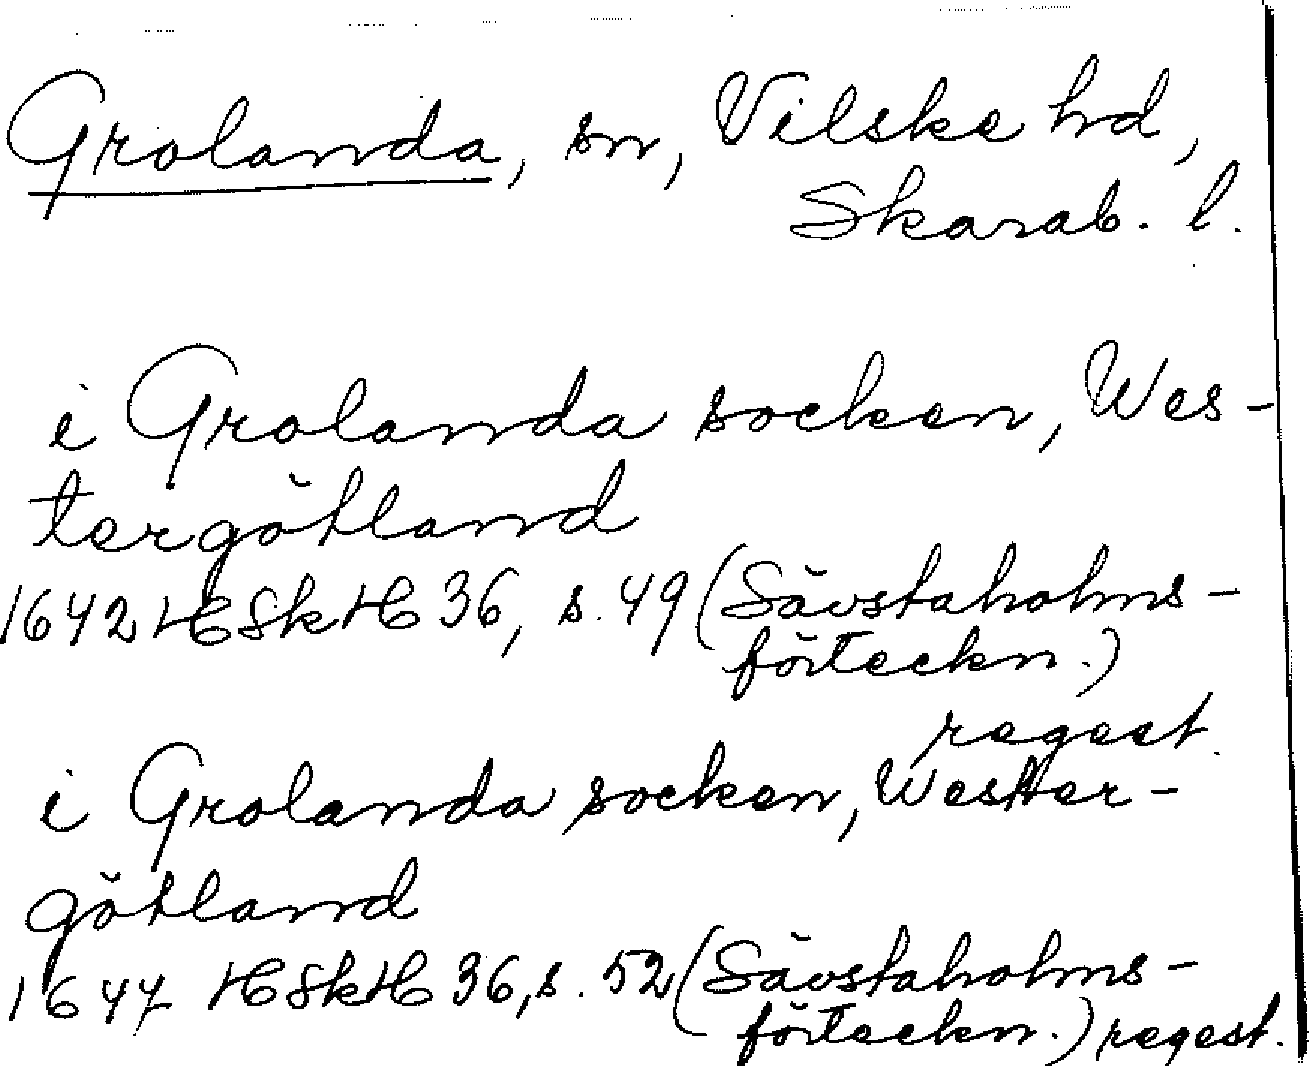 Grolanda, sn, Vilske hd,
Skarab. l.
i Grolanda socken, Wes-
tergötland
1642 HSkH 36, s. 49 (Sävstaholms-
förteckn.)
regest.
i Grolanda socken, Wester-
götland
1647 HSkH 36, s. 52 (Sävstaholms-
förteckn.) regest.